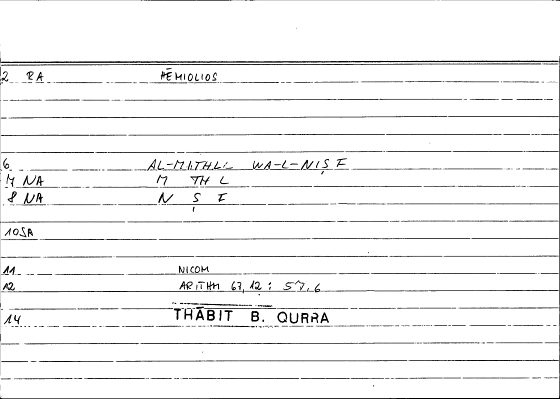 2 RA HĒMIOLIOS
6 AL-MITHL WA-L-NIṢF
7 NA M TH L
8 NA N Ṣ F
10SA
11 NICOM
12 ARITHM 67,12 : 57,6
14 THĀBIT B. QURRA